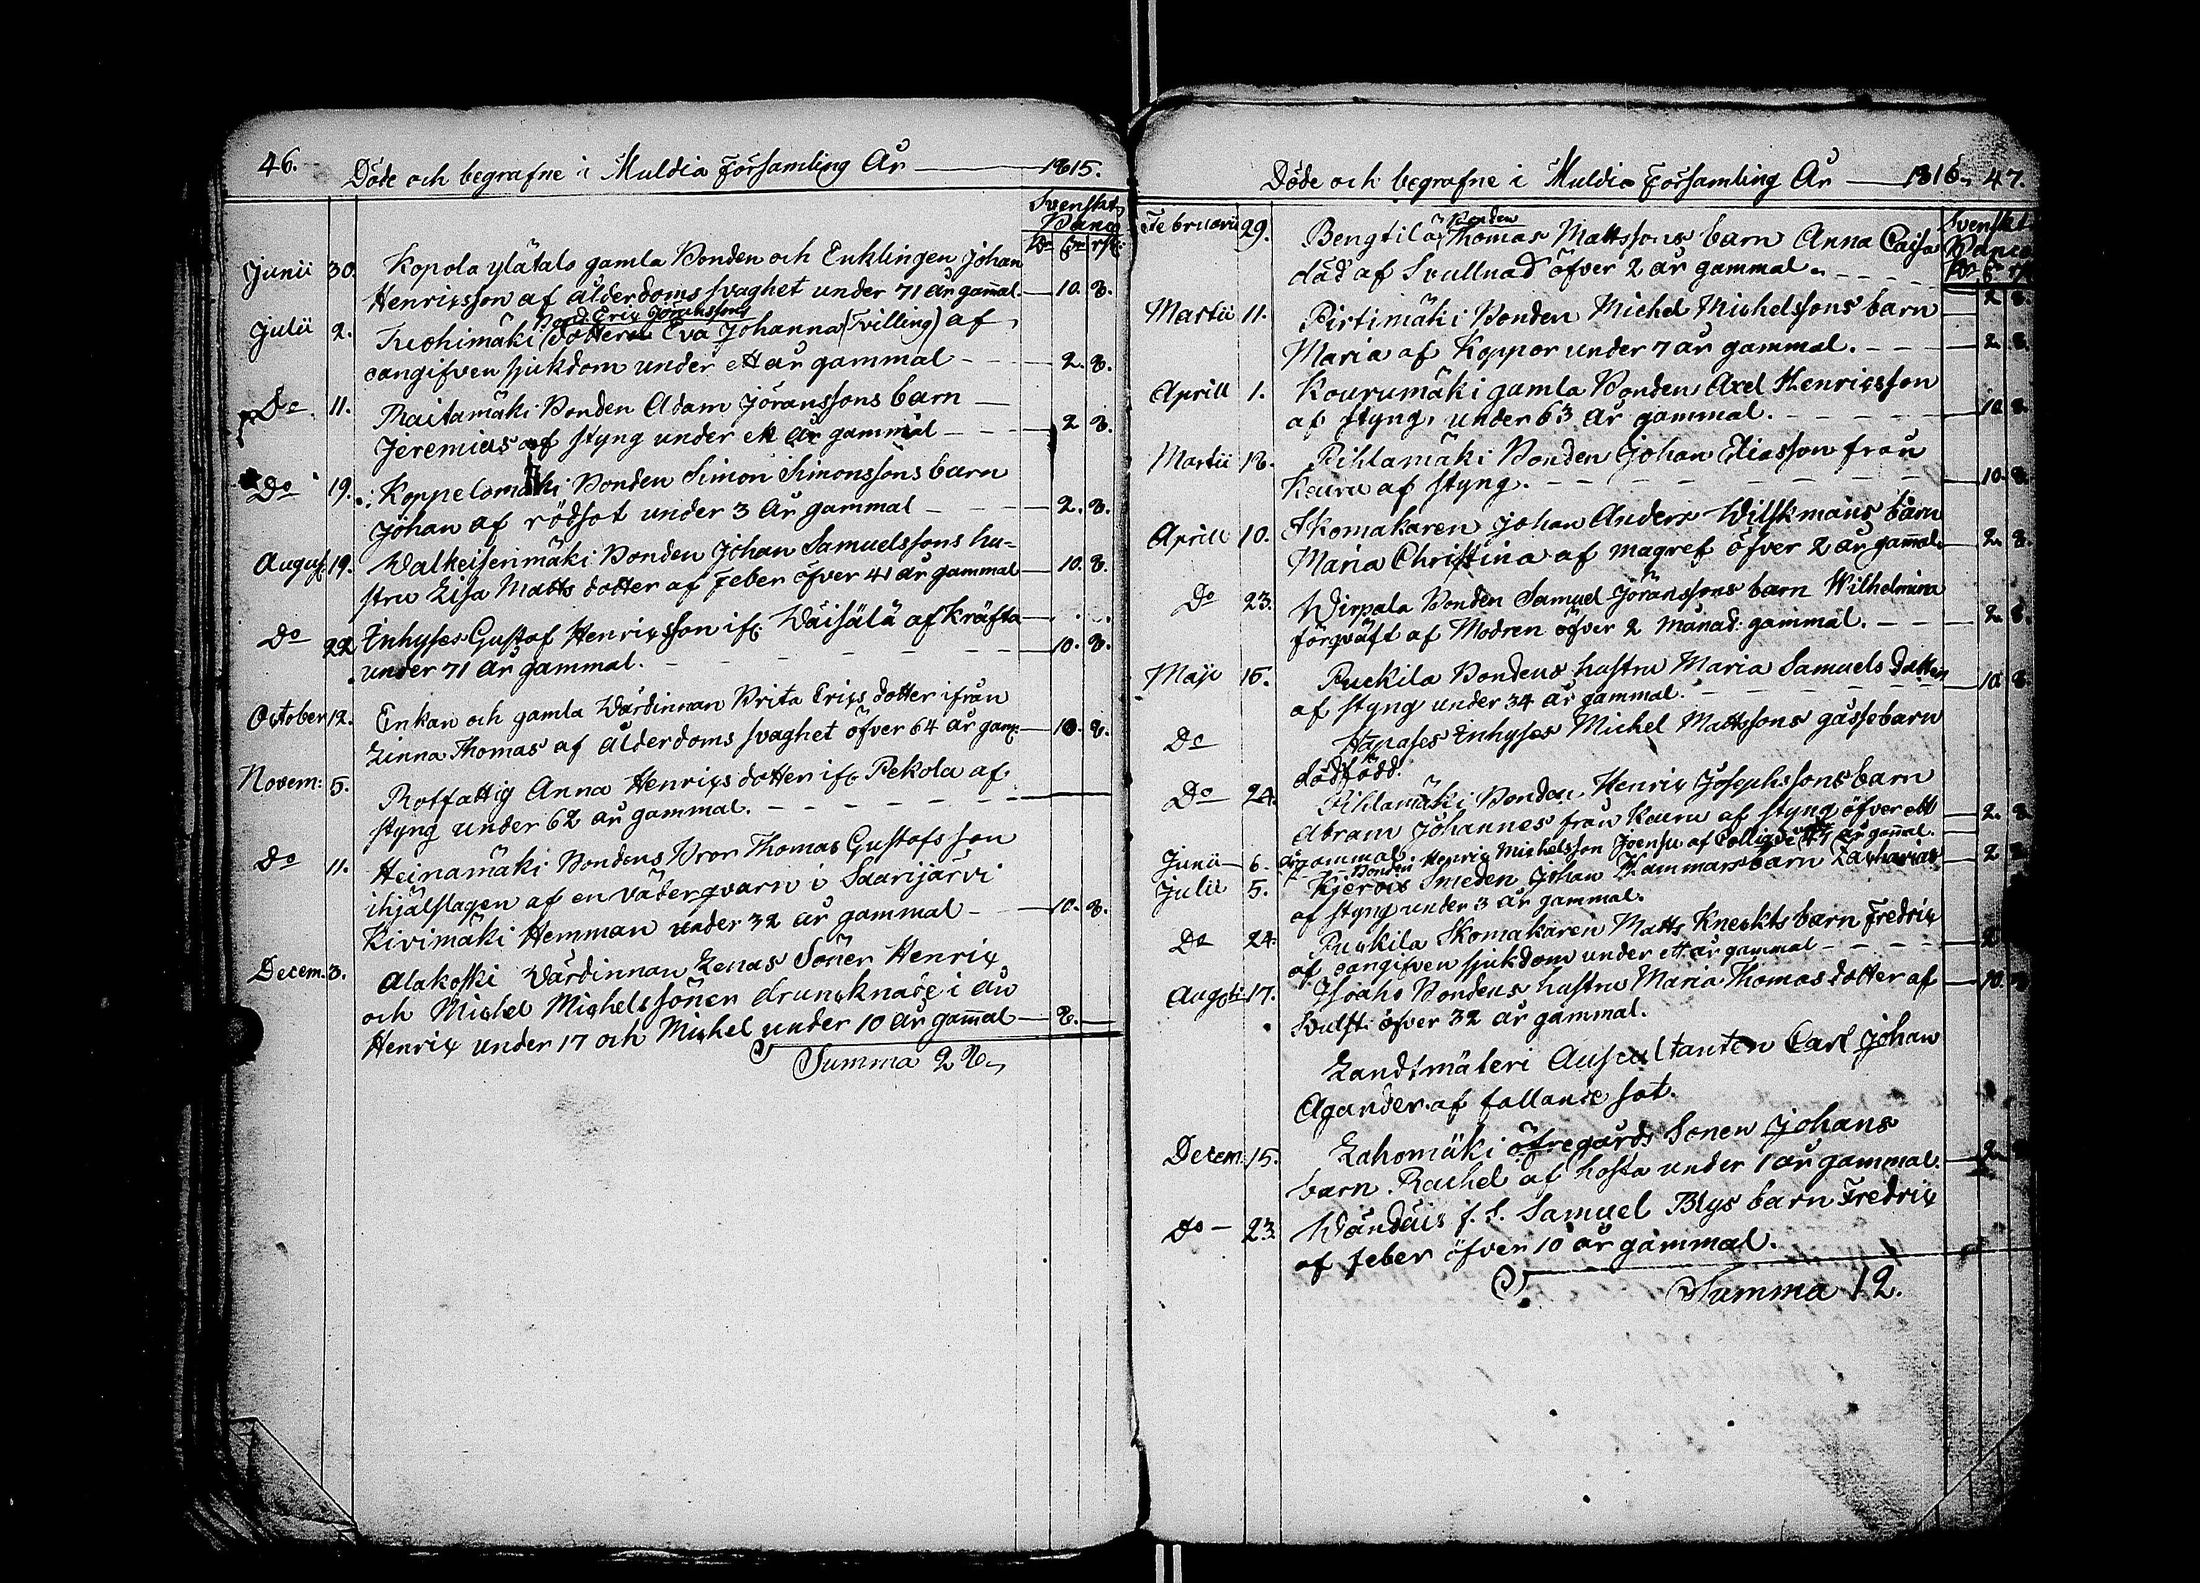 46. Döde och begrafne i Muldia Församling År 1815.
Svenskt
Banco
Rd. ß. rst.
Junii 30. Kopola ylätalo gamla Bonden och Enklingen Johan
Henricsson af ålderdoms svaghet under 71 år gammal. 10. 8.
Bond. Eric Göranssons
Julii 2. Dotteren Eva Johanna (Tvilling) af
oangifven sjukdom under ett år gammal 2. 8.
Do. 11. Raitamäki Bonden Adam Jöranssons barn
Jeremias af styng under ett år gammal 2 8.
Do 19. Koppelomäki Bonden Simon Simonssons barn
Johan af rödsot under 3 år gammal 2. 8.
August. 19. Walkeisenmäki Bonden Johan Samuelssons hu-
stru Lisa Matts dotter af Feber öfver 41 år gammal 10. 8.
Do 22 Inhyses Gustaf Henricsson if: Wäisälä af Kräfta
under 71 år gammal. 10. 8.
October 12. Enkan och gamla Wärdinnan Brita Erics dotter ifrån
Linna Thomas af ålderdoms svaghet öfver 64 år gam: 10. 8.
Novem: 5. Rotfattig Anna Henrics dotter if: Pekola af
styng under 62 år gammal.
Do 11. Heinamäki Bondens Bror Thomas Gustafs son
ihjälslagen af en väderqvarn i Saarijärvi
Kivimäki Hemman under 32 år gammal 10. 8.
Decem. 3. Alakoski Wärdinnan Lenas Söner Henric
och Michel Michelssöner druncknade i ån
Henric under 17 och Michel under 10 år gammal 8.
Summa 28
Döde och begrafne i Muldia Församling År 1816. 47.
Svenskt
Banco
Februarii 29. Bengtilä Bonden Thomas Mattssons barn Anna Caisa
död af Svullnad öfver 2 år gammal. 2 8.
Martii 11. Pirtimäki Bonden Michel Michelssons barn
Maria af Koppor under 7 år gammal. 2. 8.
Aprill 1. Kourumäki gamla Bonden Axel Henricsson
af styng, under 63 år gammal. 10. 8.
Martii 18. Pihlamäki Bonden Johan Eliasson från
Keuru af styng. 10. 8.
Aprill 10. Skomakaren Johan Anders Wilskmans barn
Maria Christina af magref öfver 2 år gammal. 2. 8.
Do 23. Wirpala Bonden Samuel Jöranssons barn Wilhelmina
förqväft af Modren öfver 2 månad: gammal. 2. 8.
Maji 16. Ruckila Bondens hustru Maria Samuels dotter
af styng under 34 år gammal. 10. 8.
Do Hapases Inhyses Michel Mattssons gossebarn
dödfödd.
Do 24. Pihlamäki Bonden Henric Josephssons barn
Abram Johannes från Keuru af styng öfver ett 2. 8
år gammal.
Junii 6. Bonden Henric Michelsson Joensu af Collique år gammal.
Julii 5. Smeden Johan Kammars barn Zacharias 2 8
af styng under 3 år gammal.
Do 24. Ruckila Skomakaren Matts Kneckts barn Fredric
af oangifven sjukdom under ett år gammal 2
Augusti 17. Isoaho Bondens hustru Maria Thomas dotter af 10.
Svulst öfver 32 år gammal.
Landtmäteri Auscultanten Carl Johan
Agander af fallande sot.
Decem: 15. Lahomäki öfregårds Sonen Johans
barn Rachel af hosta under 1 år gammal. 2.
Do 23. f. S. Samuel Blys barn Fredric
af Feber öfver 10 år gammal.
Summa 12.